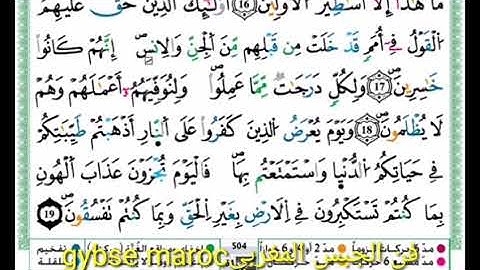 مَا هَٰذَا إِلَّا أَسَٰطِيرُ اُلْأَوَّلِينَ 16 أُوْلَٰئِكَ اَلذِينَ حَقَّ عَلَيْهِمُ
اُلْقَوْلُ فِي أُمَمٖ قَدْ خَلَتْ مِن قَبْلِهِم مِّنَ اَلْجِنِّ وَالْإِنسِ إِنَّهُمْ كَانُوا
خَٰسِرِينَ 17 وَلِكُلّٖ دَرَجَٰتٞ مِّمَّا عَمِلُوا وَلِنُوَفِّيَهُمُ أَعْمَٰلَهُمْ وَهُمْ
لَا يُظْلَمُونَ 18 وَيَوْمَ يُعْرَضُ اُلذِينَ كَفَرُوا عَلَى اَلنَّارِ أَذْهَبْتُمْ طَيِّبَٰتِكُمْ
فِي حَيَاتِكُمُ اُلدُّنْيَا وَاسْتَمْتَعْتُم بِهَا فَالْيَوْمَ تُجْزَوْنَ عَذَابَ اَلْهُونِ
بِمَا كُنتُمْ تَسْتَكْبِرُونَ فِي اِلْأَرْضِ بِغَيْرِ اِلْحَقِّ وَبِمَا كُنتُمْ تَفْسُقُونَ 19
504 تفخيم
gybse.maroc في الجبس المغربي